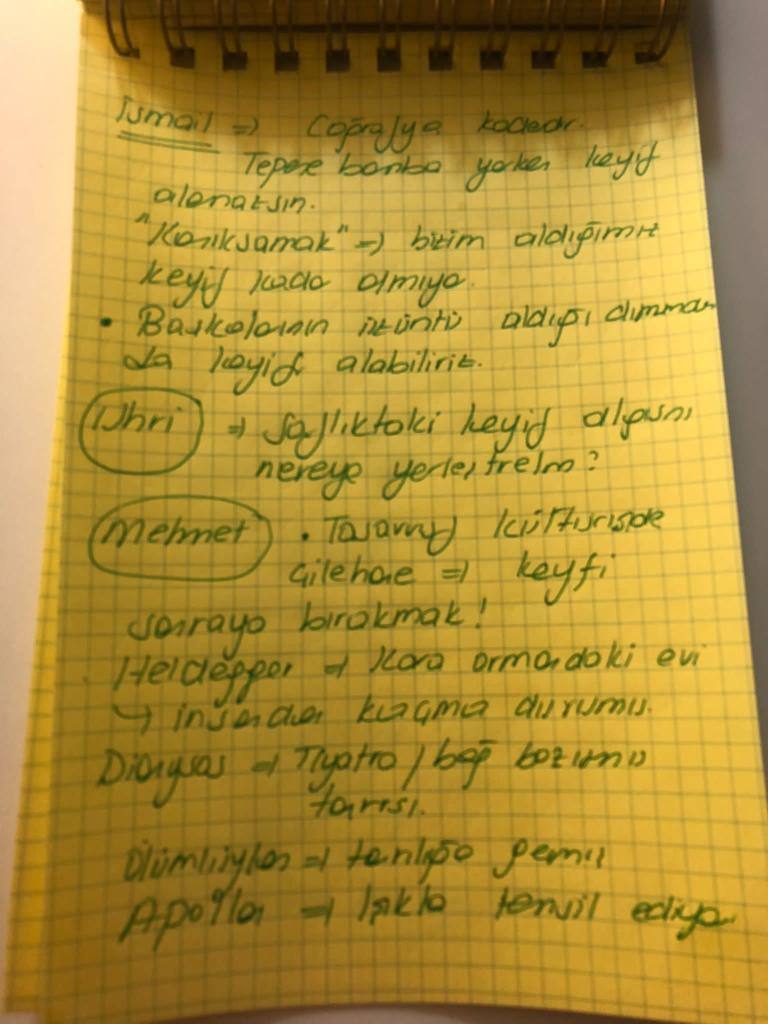 İsmail => Coğrafya kaderdir.
Tepene bomba yağarken keyif
alamazsın.
"Kanıksamak" => bizim aldığımız
keyif kadar olmuyor.
• Başkalarının üzüntü aldığı durumdan
da keyif alabiliriz.
=> Sağlıktaki keyif algısını
nereye yerleştirelim?
Mehmet • Tasavvuf kültüründe
Çilehane => keyfi
sonraya bırakmak!
Heidegger => Kara ormandaki evi
↳ insandan kaçma durumu.
Dionysos => Tiyatro / bağ bozumu
tanrısı.
=> tanrılığa geçmiş
Apollon => Işıkla temsil ediyor